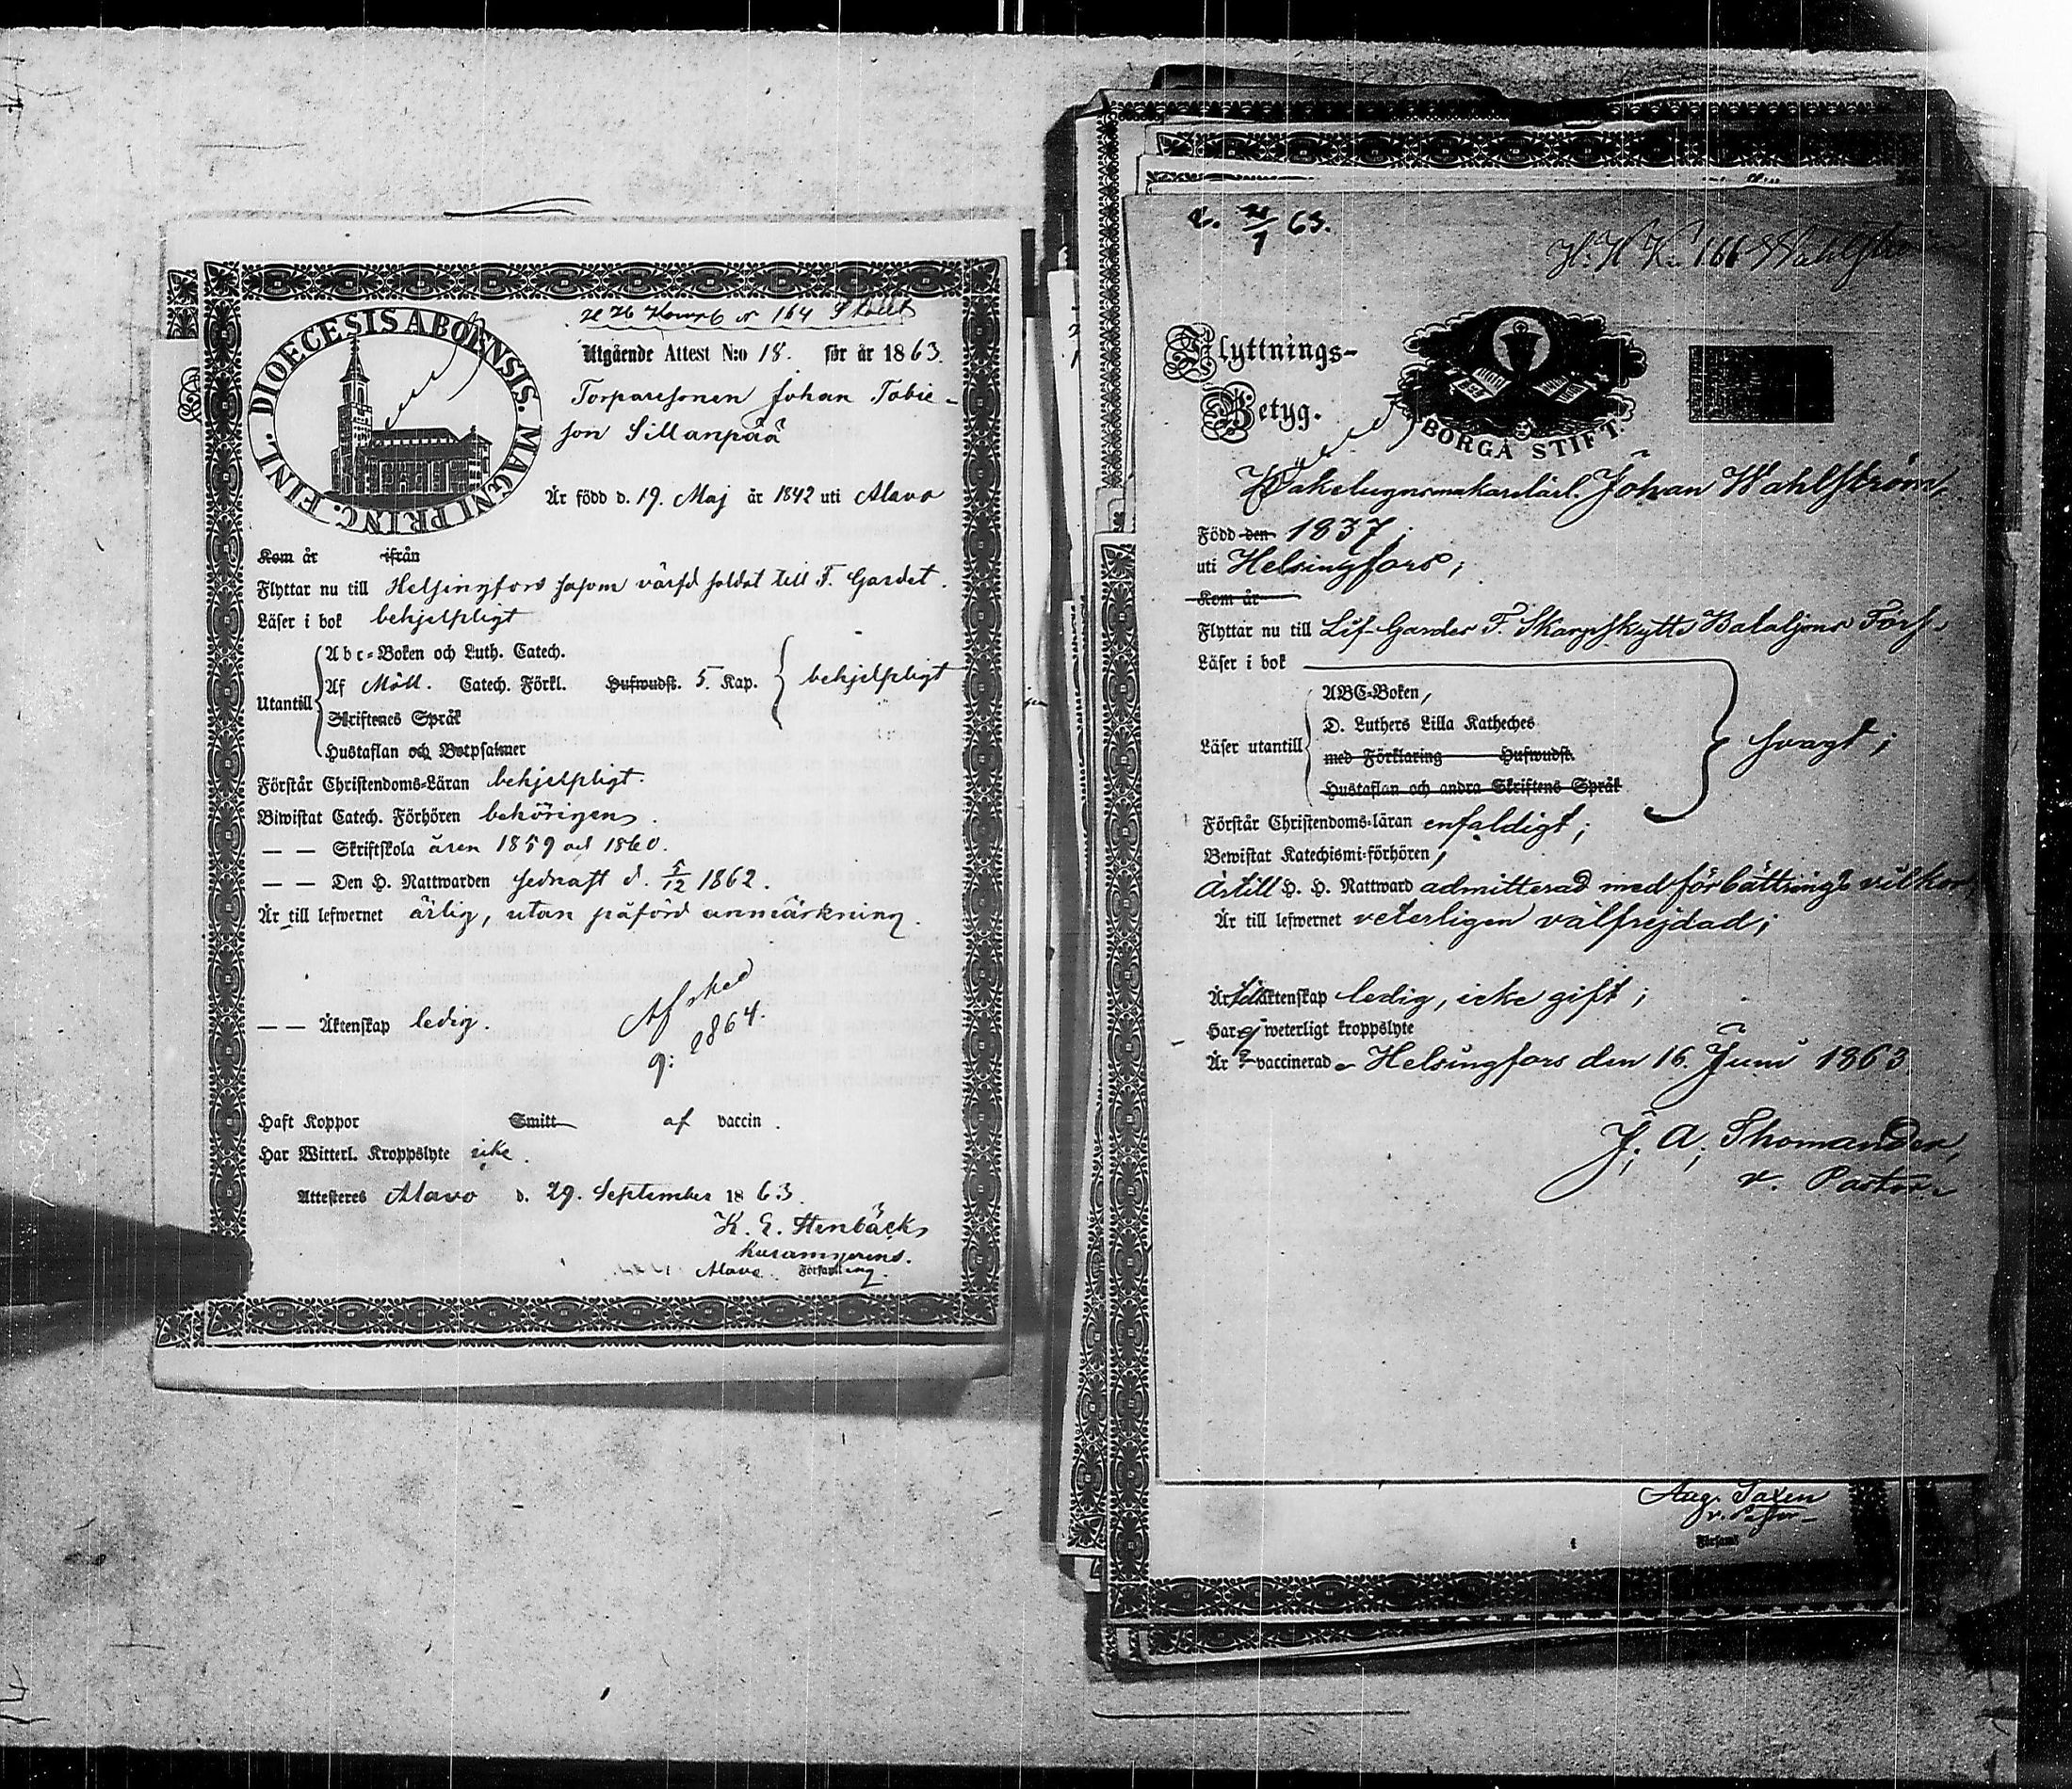 H H Komp 6 N 164 Stolt
DIOECESIS ABOËNSIS. MAGNI PRINC. FINL.
Utgående Attest N:o 18. för år 1863.
Torparesonen Johan Tobie-
son Sillanpää
Är född d. 19. Maj år 1842 uti Alavo
Kom år ifrån
Flyttar nu till Helsingfors såsom värfd soldat till F. Gardet.
Läser i bok behjelpligt
Abc-Boken och Luth. Catech.
Utantill Af Möll. Catech. Förkl. Hufwudst. 5. Kap. behjelpligt
Skriftenes Språk
Hustaflan och Botpsalmer
Förstår Christendoms-Läran behjelpligt.
Biwistat Catech. Förhören behörigen.
— — Skriftskola åren 1859 och 1860.
— — Den H. Nattwarden sednast d. 5/12 1862.
Är till lefwernet ärlig, utan påförd anmärkning.
— — Äktenskap ledig.
Afsked
9: 1864.
Haft Koppor Smitt af vaccin.
Har Witterl. Kroppslyte icke.
Attesteres Alavo d. 29. September 1863.
K. E. Stenbäck
Alavo Församling.
63.
H. H. K. 166 Wahlström
Flyttnings-
Betyg.
BORGÅ STIFT.
Kakelugnsmakarelärl. Johan Wahlström,
Född den 1837;
uti Helsingfors;
Kom år
Flyttar nu till Lif-Gardes F. Skarpskytte Bataljons Förs.
Läser i bok
ABC-Boken,
D. Luthers Lilla Katheches
Läser utantill svagt;
med Förklaring Hufwudst.
Hustaflan och andra Skriftens Språk
Förstår Christendoms-läran enfaldigt;
Bewistat Katechismi-förhören,
är till H. H. Nattward admitterad med förbättrings vilkor
Är till lefwernet veterligen välfrejdad;
Är till äktenskap ledig, icke gift;
Har ej weterligt kroppslyte
Är vaccinerad Helsingfors den 16. Juni 1863
J. A. Thomander,
v. Pastor
Aug. Saxen
v. Pastor
Församl